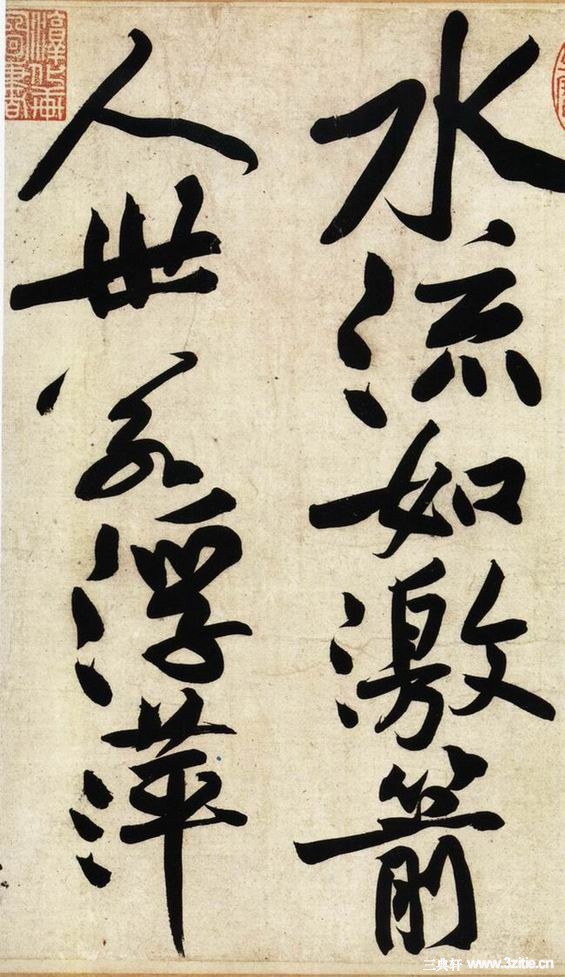 水流如激箭
人世若浮萍
三典轩 www.3zitie.cn